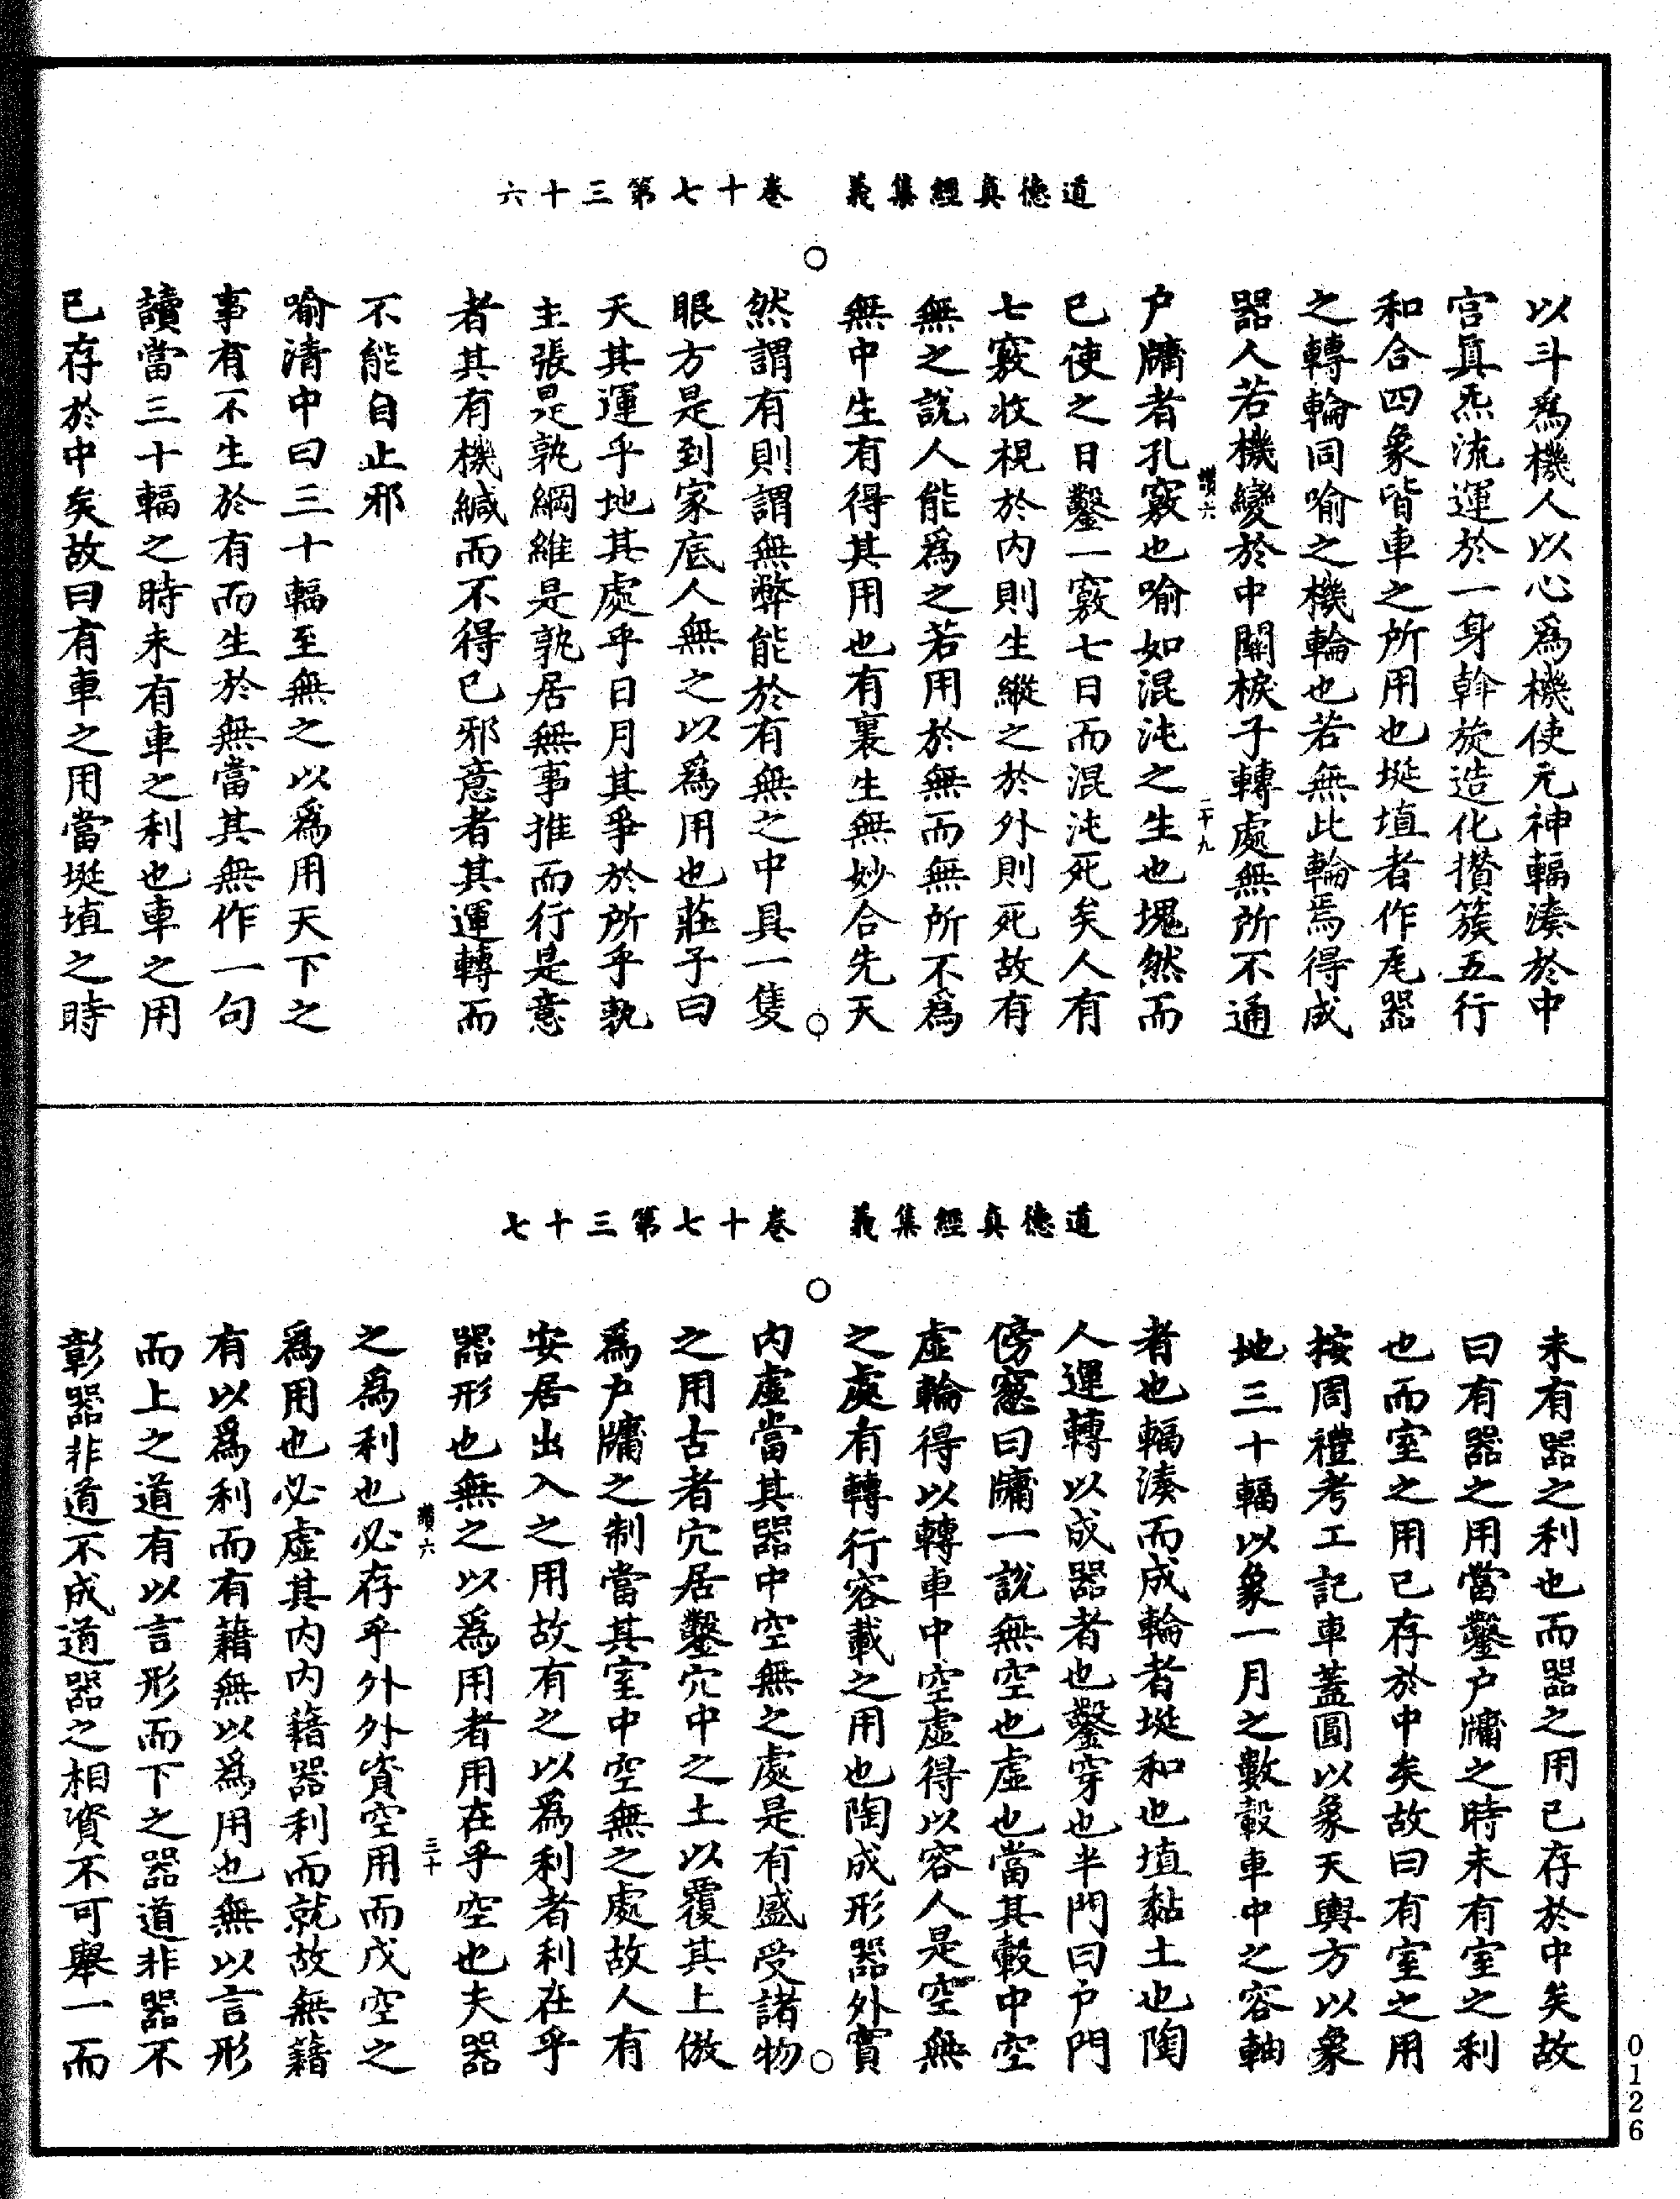 道德真經集義　卷十七第三十六
以斗爲機人以心爲機使元神輻湊於中
宫真炁流運於一身斡旋造化攅簇五行
和合四象皆車之所用也埏埴者作瓦器
之轉輪同喻之機輪也若無此輪焉得成
器人若機變於中關棙子轉處無所不通
讃六　二十九
户牖者孔竅也喻如混沌之生也塊然而
已使之日鑿一竅七日而混沌死矣人有
七竅收視於内則生縱之於外則死故有
無之說人能爲之若用於無而無所不爲
無中生有得其用也有裏生無妙合先天
然謂有則謂無弊能於有無之中具一隻
眼方是到家底人無之以爲用也莊子曰
天其運乎地其處乎日月其爭於所乎孰
主張是孰綱維是孰居無事推而行是意
者其有機緘而不得已邪意者其運轉而
不能自止邪
喻清中曰三十輻至無之以爲用天下之
事有不生於有而生於無當其無作一句
讀當三十輻之時未有車之利也車之用
已存於中矣故曰有車之用當埏埴之時
道德真經集義　卷十七第三十七
未有器之利也而器之用已存於中矣故
曰有器之用當鑿户牖之時未有室之利
也而室之用已存於中矣故曰有室之用
按周禮考工記車蓋圓以象天輿方以象
地三十輻以象一月之數轂車中之容軸
者也輻湊而成輪者埏和也埴黏土也陶
人運轉以成器者也鑿穿也半門曰户門
傍窻曰牖一說無空也虛也當其轂中空
虛輪得以轉車中空虛得以容人是空無
之處有轉行容載之用也陶成形器外實
内虛當其器中空無之處是有盛受諸物
之用古者穴居鑿穴中之土以覆其上倣
爲户牖之制當其室中空無之處故人有
安居出入之用故有之以爲利者利在乎
器形也無之以爲用者用在乎空也夫器
讃六　三十
之爲利也必存乎外外資空用而成空之
爲用也必虛其内内藉器利而就故無藉
有以爲利而有藉無以爲用也無以言形
而上之道有以言形而下之器道非器不
彰器非道不成道器之相資不可舉一而
0126